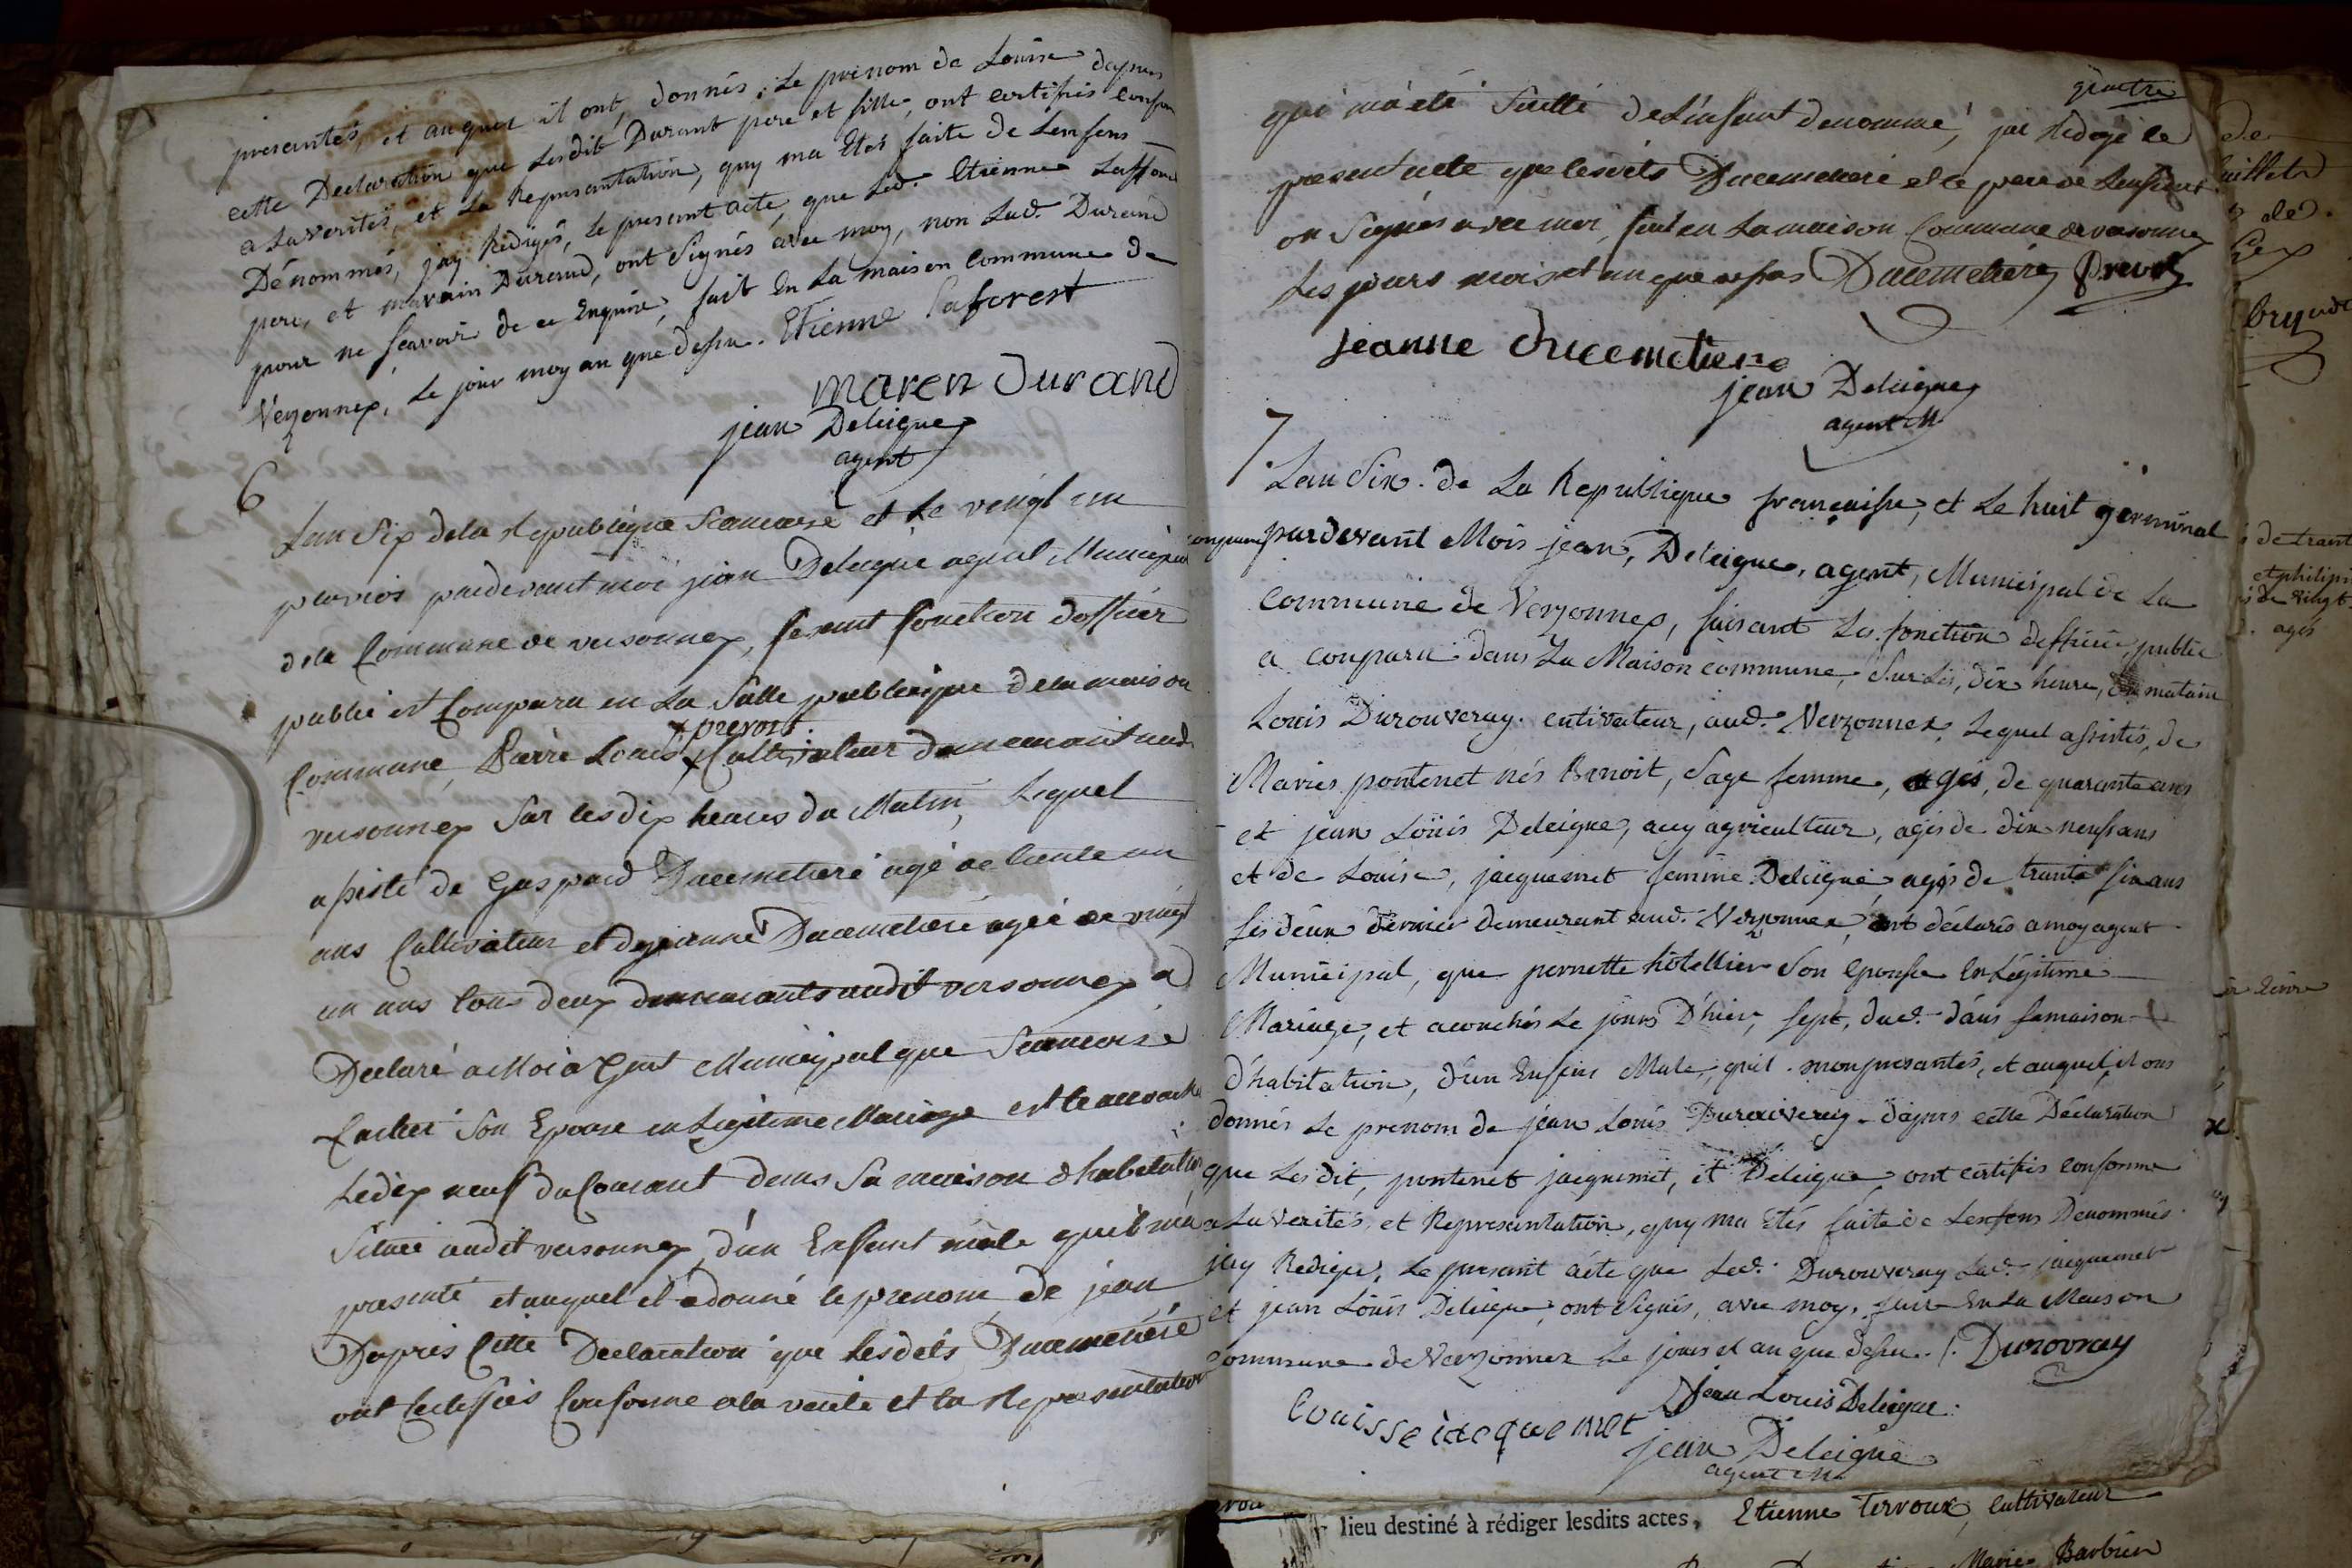 presentés, et auquel il ont, donnés, Le prénom de Louise dapres
cette Declaration que Lesdit Durant pere et fille, ont certifiés conform
a La verités, et La Representation, quy ma Etés faite de Lenfens
Dénommés, jay Redigés, Le present acte, que Led. Etienne Laffore
pere, et marain Durand, ont Signés avec moy, non Lad. Durand
pour ne scavoir de ce Enquise, fait En La maison commune de
Verzonnex, Le jour moy an que dessu. Etienne Laforest
maren Durand
jean Deleigue
agent
6
Lan Six dela Republique francaise et Le veingt un
pluvios pardevant moi jean Deleigue agent Municipal
dela Commune de versonnex, fesant fonction dofficier
public est Comparu en La Salle publique dela maison
x prevost
Commune Pierre Louis x Cultivateur demeurant aud.
versonnex Sur les dix heures du Matin, Lequel
assisté de Gaspard Ducemetiere agé de trente un
ans Cultivateur et de jeanne Ducemetiere agée de vingt
un ans tous deux demeurants audit versonnex a
Declaré a Moi agent Municipal que francoise
Lachet Son Epouse en Legitime Mariage est accouché
Ledix neuf du Courant dans Sa maison dhabitation
Situeé audit versonnex, d'un Enfant mâle quil m'a
presenté et auquel il a donné le prenom de jean
Dapres Cette Declaration que Lesdits Ducemetiere
ont Certifiés Conforme ala verité et la Representation
quatre
qui m'a été faitte de L'enfant denommé, jai Redigé le
present acte que lesdits Ducemetiere et le pere de Lenfant
on Signés avec moi, fait en La maison Commune de versonnex
Les jours mois et an que dessus Ducemetiere Prevost
jeanne ducemetiere
jean Deleigue
agent M.
7.
Lan Six. de La Republique françaisse, et Le huit germinal
pardevant Mois jean, Deleigue, agent, Municipal de La
Commune de Verzonnex, faisant Les fonction dofficier, public
a comparu dans La Maison commune, Sur Les, dix heure, du matain
Louis Durouveray. cultivateur, aud. Verzonnex, Lequel assistés, de
Maries pontenet nés Benoit, Sage femme, agés, de quarante ans
et jean Loüis Deleigue, aussy agriculteur, agés de dix neuf ans
et de Louise, jacquemet femme Deleigue, agés de trante six ans
Les deux dernier demeurant aud. Verzonnex, ont déclarés a moy agent
Municipal, que pernette hôtellier Son Epouse En Légitime
Mariage, et acouchés Le jours D'hier, sept, dud. dans sa maison
d'habitation, d'un Enfens Male, quil. mon presantés, et auquel il ons
donnés Le prenom de jean Louis Durouveray. dapres cette Déclaration
que Les dit, pontenet jaquemet, et Deleigue, ont certifiés conforme
a La verités, et Representation, quy ma Etés faite de Lenfens Denommés
jay Rediges, Le present acte que Led. Durouveray Lad. jaquemet
et jean Loüis Deleigue, ont Signés, avec moy. fait En La Maison
Commune de Verzonnex Le jours et an que dessu. /. Durovray
Louisse iacquemet Jean Louis Deleigue
jean Deleigue
agent M.
lieu destiné à rédiger lesdits actes, Etienne Tervoux, cultivateur
Marie Barbier